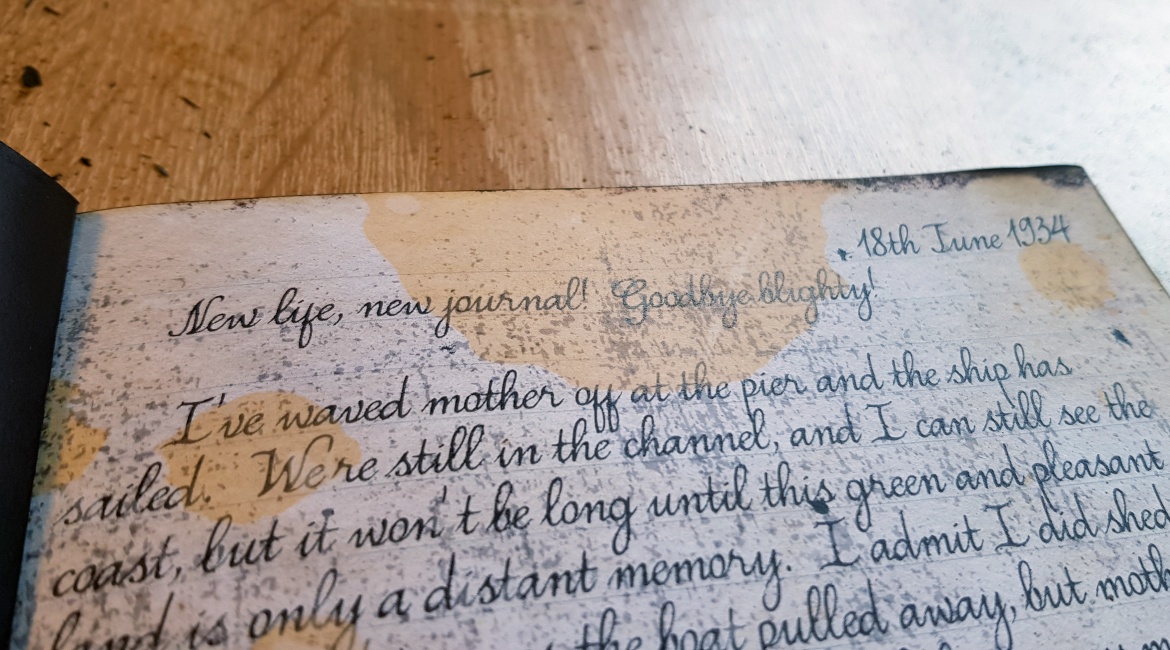 18th June 1934
New life, new journal! Goodbye blighty!
I've waved mother off at the pier and the ship has
sailed. We're still in the channel, and I can still see the
coast, but it won't be long until this green and pleasant
land is only a distant memory. I admit I did shed
the boat pulled away, but moth